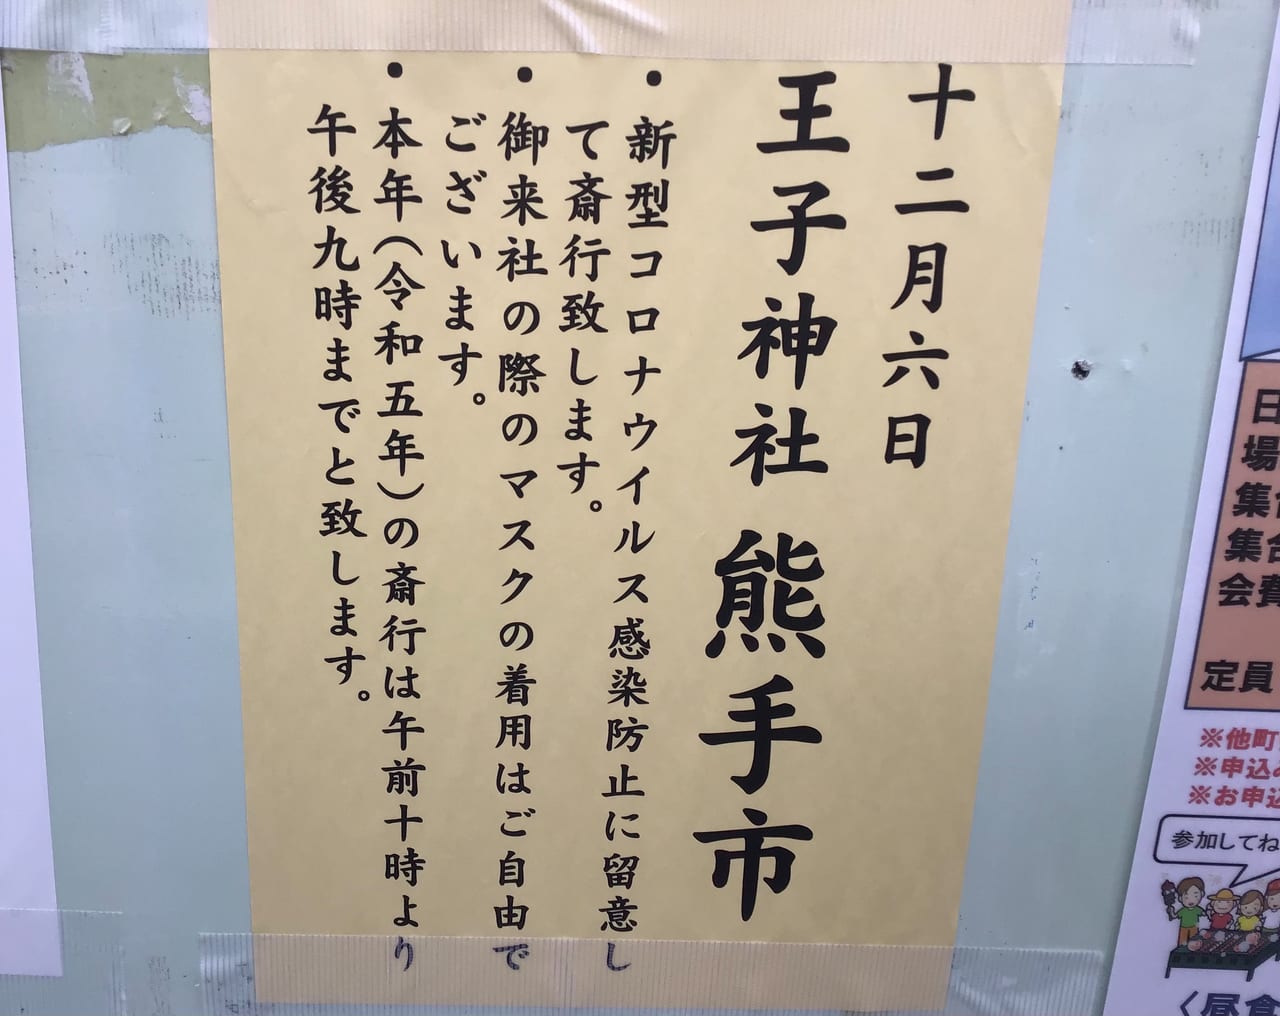 十二月六日
王子神社 熊手市
・新型コロナウイルス感染防止に留意し
て斎行致します。
・御来社の際のマスクの着用はご自由で
ございます。
・本年（令和五年）の斎行は午前十時より
午後九時までと致します。
日
場
集合
集合
会費
定員
※他町
※申込み
※お申込
参加してね
〈昼食